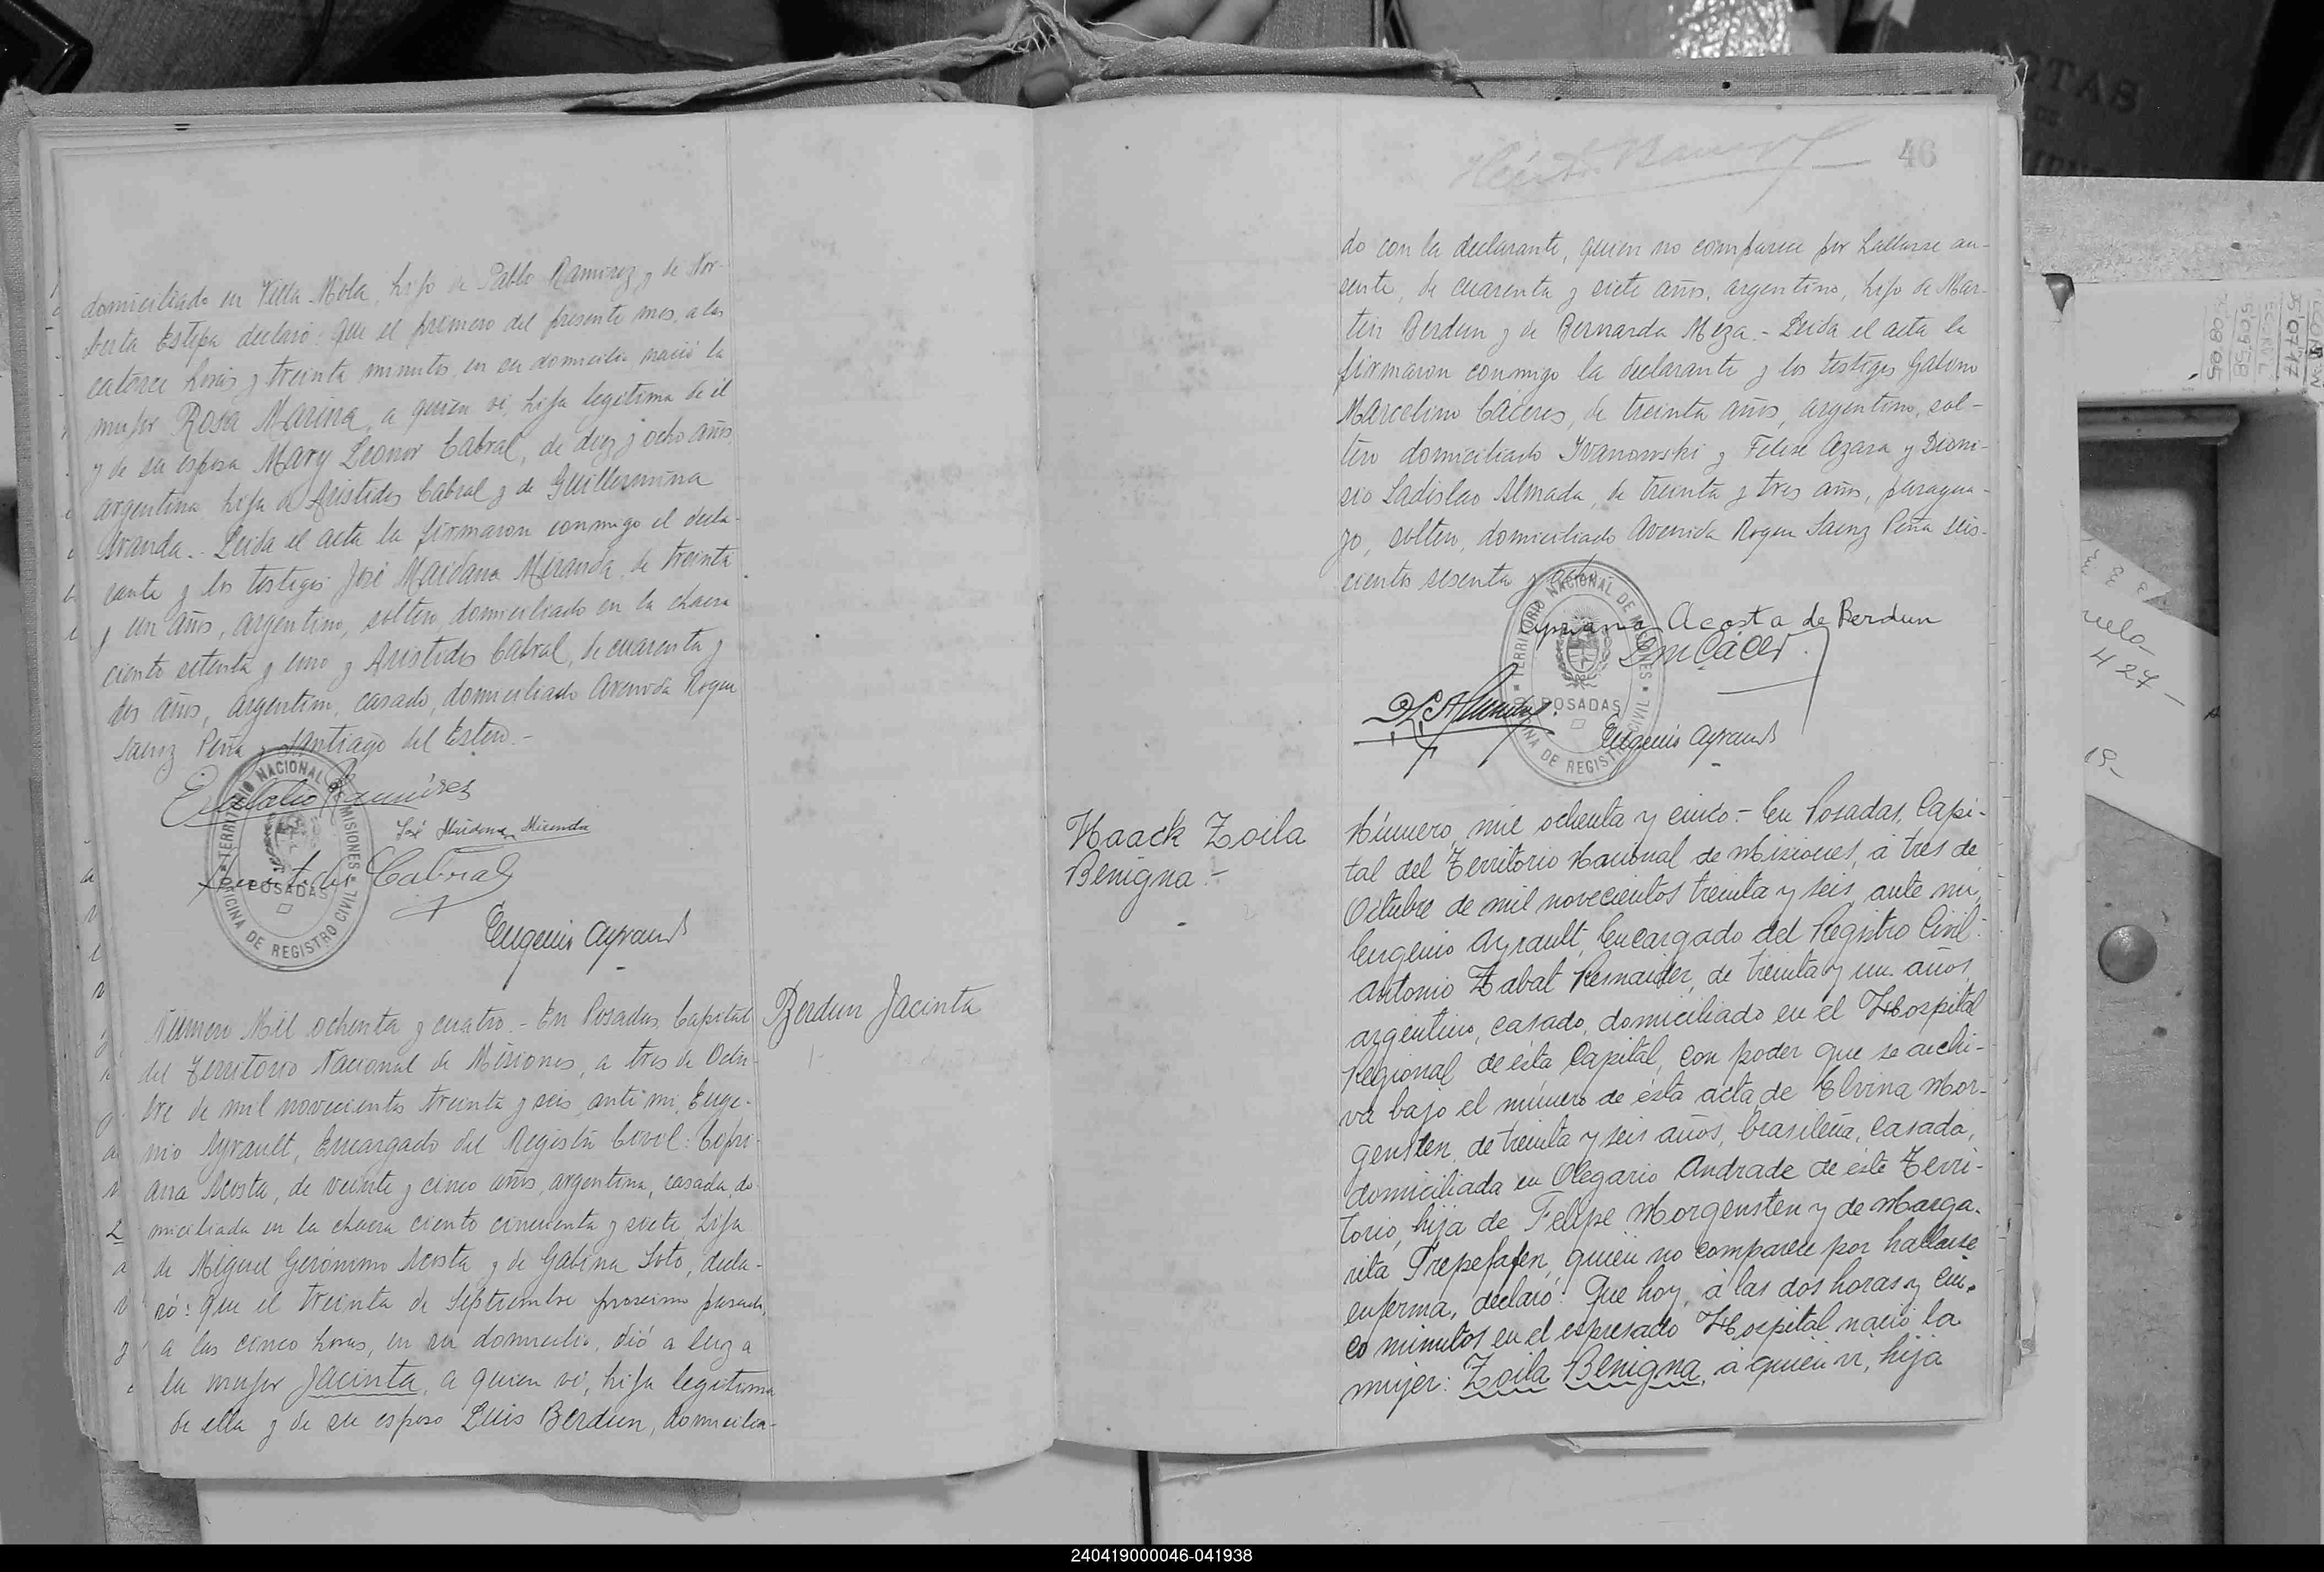 domiciliado en Villa Mola, hijo de Pablo Ramirez y de Nor-
berta Estepa declaró: Que el primero del presente mes, a las
catorce horas y treinta minutos, en su domicilio nació la
mujer Rosa Marina, a quien vi, hija legítima de él
y de su esposa Mary Leonor Cabral, de diez y ocho años
argentina, hija de Aristides Cabral y de Guillermina
Aranda.- Leida el acta la firmaron conmigo el decla-
rante y los testigos José Maidana Miranda, de treinta
y un años, argentino, soltero, domiciliado en la chacra
ciento setenta y uno y Aristides Cabral, de cuarenta y
dos años, argentino, casado, domiciliado Avenida Roque
Saenz Peña y Santiago del Estero.-
Ramírez
José Maidana Miranda
Aristides Cabral
Eugenio Ayrault
TERRITORIO NACIONAL DE MISIONES
POSADAS
OFICINA DE REGISTRO CIVIL
Berdun Jacinta
Número Mil ochenta y cuatro.- En Posadas, Capital
del Territorio Nacional de Misiones, a tres de Octu-
bre de mil novecientos treinta y seis, ante mi, Euge-
nio Ayrault, Encargado del Registro Civil: Cipri-
ana Acosta, de veinte y cinco años, argentina, casada, do-
miciliada en la chacra ciento cincuenta y siete, hija
de Miguel Gerónimo Acosta y de Gabina Soto, decla-
ró: Que el treinta de Septiembre proximo pasado,
a las cinco horas, en su domicilio, dió a luz a
la mujer Jacinta, a quien vi, hija legitima
de ella y de su esposo Luis Berdun, domicilia-
46
do con la declarante, quien no comparece por hallarse au-
sente, de cuarenta y siete años, argentino, hijo de Mar-
tin Berdun y de Bernarda Meza.- Leida el acta la
firmaron conmigo la declarante y los testigos Galvino
Marcelino Caceres, de treinta años, argentino, sol-
tero domiciliado Ivanowski y Felix Azara y Dioni-
sio Ladislao Almada, de treinta y tres años, paragua-
yo, soltero, domiciliado Avenida Roque Saenz Peña seis-
cientos sesenta y ocho
Cipriana Acosta de Berdun
Eugenio Ayrault
TERRITORIO NACIONAL DE MISIONES
POSADAS
OFICINA DE REGISTRO CIVIL
Haack Zoila
Benigna.-
Número, mil ochenta y cinco.- En Posadas, Capi-
tal del Territorio Nacional de Misiones, á tres de
Octubre de mil novecientos treinta y seis, ante mi,
Eugenio Ayrault, Encargado del Registro Civil:
Antonio Zabat Kernaider, de treinta y un años,
argentino, casado, domiciliado en el Hospital
Regional de ésta Capital, con poder que se archi-
va bajo el número de ésta acta de Elvina Mor-
gensten, de treinta y seis años, brasileña, casada,
domiciliada en Olegario Andrade de éste Terri-
torio, hija de Felipe Morgensten y de Marga-
rita Prepefafen, quien no comparece por hallarse
enferma, declaró: Que hoy, á las dos horas y cin-
co minutos en el espresado Hospital nació la
mujer: Zoila Benigna, á quien vi, hija
240419000046-041938